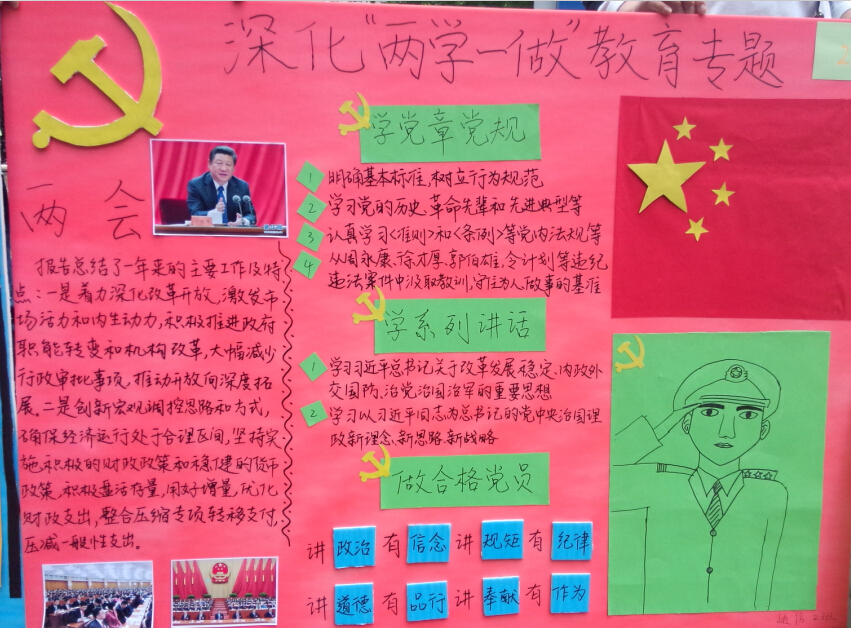 深化“两学一做”教育专题
两会
报告总结了一年来的主要工作及特
点:一是着力深化改革开放,激发市
场活力和内生动力,积极推进政府
职能转变和机构改革,大幅减少
行政审批事项,推动开放向深度拓
展。二是创新宏观调控思路和方式,
确保经济运行处于合理区间,坚持实
施积极的财政政策和稳健的货币
政策,积极盘活存量,用好增量,优化
财政支出,整合压缩专项转移支付,
压减一般性支出。
学党章党规
1 明确基本标准,树立行为规范
2 学习党的历史,革命先辈和先进典型等
3 认真学习<准则>和<条例>等党内法规等
4 从周永康、徐才厚、郭伯雄、令计划等违纪
违法案件中汲取教训,守住为人做事的基准
学系列讲话
1 学习习近平总书记关于改革发展稳定、内政外
交国防、治党治国治军的重要思想
2 学习以习近平同志为总书记的党中央治国理
政新理念、新思路、新战略
做合格党员
讲政治 有信念 讲规矩 有纪律
讲道德 有品行 讲奉献 有作为